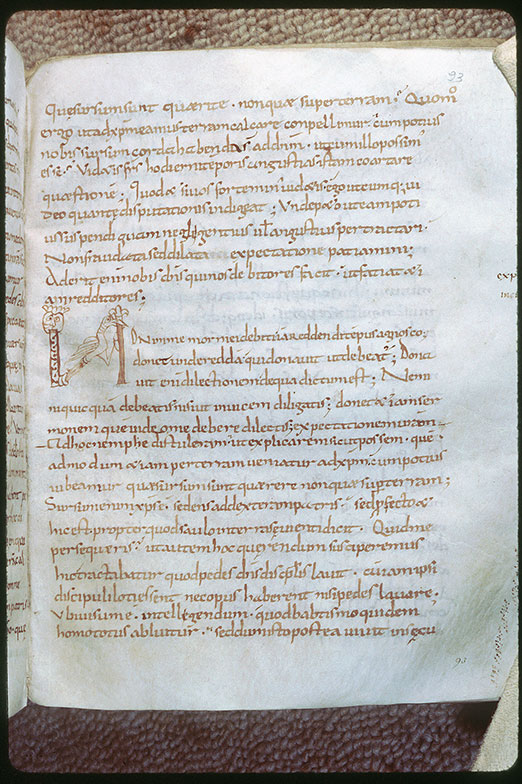 Quesursumsunt quaerite · nonquae superterram ; Quomo
ergo utadxpmeamus terram calcare conpellimur · cumpotius
nobis sursum corda habenda ad dnm · utcumillo possim'
esse ; Videtis frs hodierni temporis angustias istam coartare
quaestionem ; Quod etsi uos forte minus uidetis ego utcumque ui
deo quante disputationis indigeat · Unde peto uos ut eam poti
us suspendi quam neglegentius uel angustius pertractari ·
Non fraudata sed dilata expectatione patiamini ;
Aderit enim nobis dns qui nos debitores facit · ut faciat eti
am redditores ;
Non inme mor mei debiti iam reddendi tempus agnosco ·
donet unde reddam qui donauit ut debeam ; Dona
uit enim dilectionem dequa dictum est ; Nemi
ni quicquam debeatis nisi ut inuicem diligatis ; donet etiam ser
monem quem uideo me debere dilectis ; expectationem uram
Adhoc nempe distuleram · ut explicarem sicut possem · que
admodum etiam per terram ueniatur adxpm · cum potius
iubeamur quae sursum sunt querere non quae sup terram ;
Sursum enim xps e sedens ad dexteram patris · sed pfecto et
hic est · propter quod saulo in terra seuienti dicit · Quid me
persequeris · ut autem hoc querendum susciperemus
hinc tractabatur quod pedes dns discipulis lauit · cum ipsi
discipuli loti essent nec opus haberent nisi pedes lauare ·
Vbi uisum e · intellegendum · quod babtismo quidem
homo totus abluitur · sed dum isto postea uiuit in secu
93
93